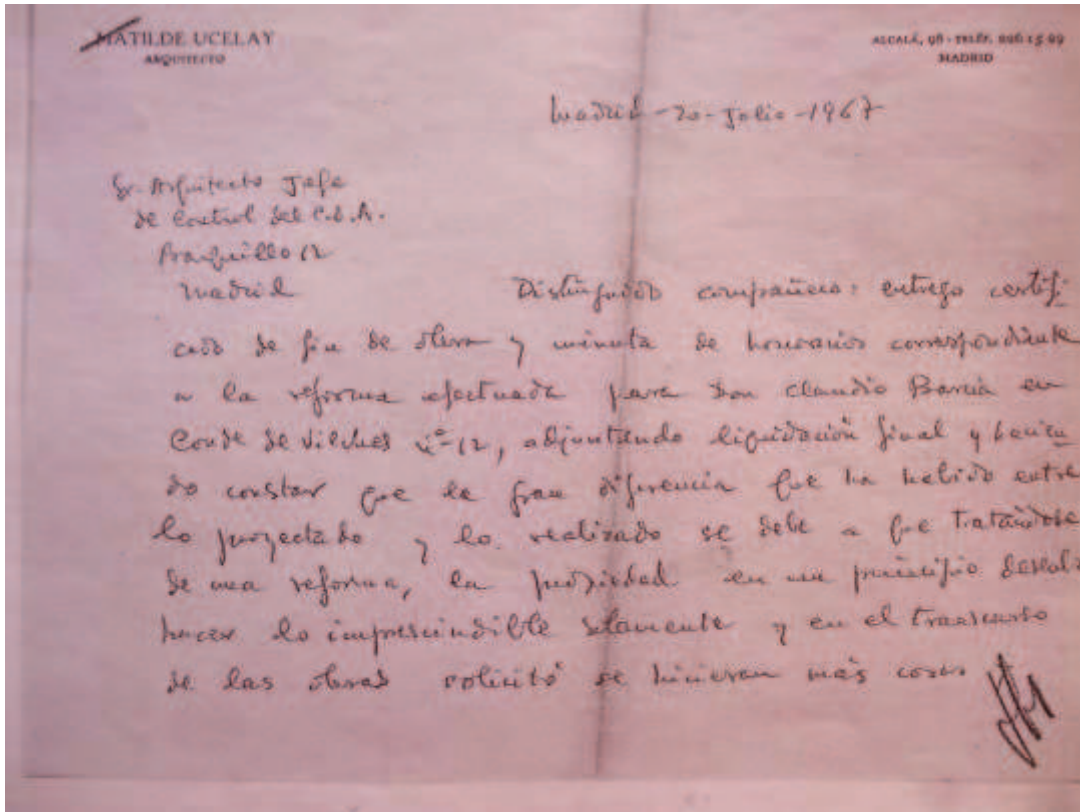 MATILDE UCELAY
ARQUITECTO
ALCALÁ, 98 - TELÉF. 226 15 99
MADRID
Madrid - 20 - Julio - 1967
Sr. Arquitecto Jefe
de Control del C.O.A.
Barquillo 12
Madrid
Distinguido compañero: entrego certifi-
cado de fin de obra y minuta de honorarios correspondiente
a la reforma efectuada para Don Claudio Barcia en
Conde de Vilches nº 12, adjuntando liquidación final y hacien
do constar que la gran diferencia que ha habido entre
lo proyectado y lo realizado se debe a que tratándose
de una reforma, la propiedad en un principio deseaba
hacer lo imprescindible solamente y en el transcurso
de las obras solicitó se hicieran más cosas